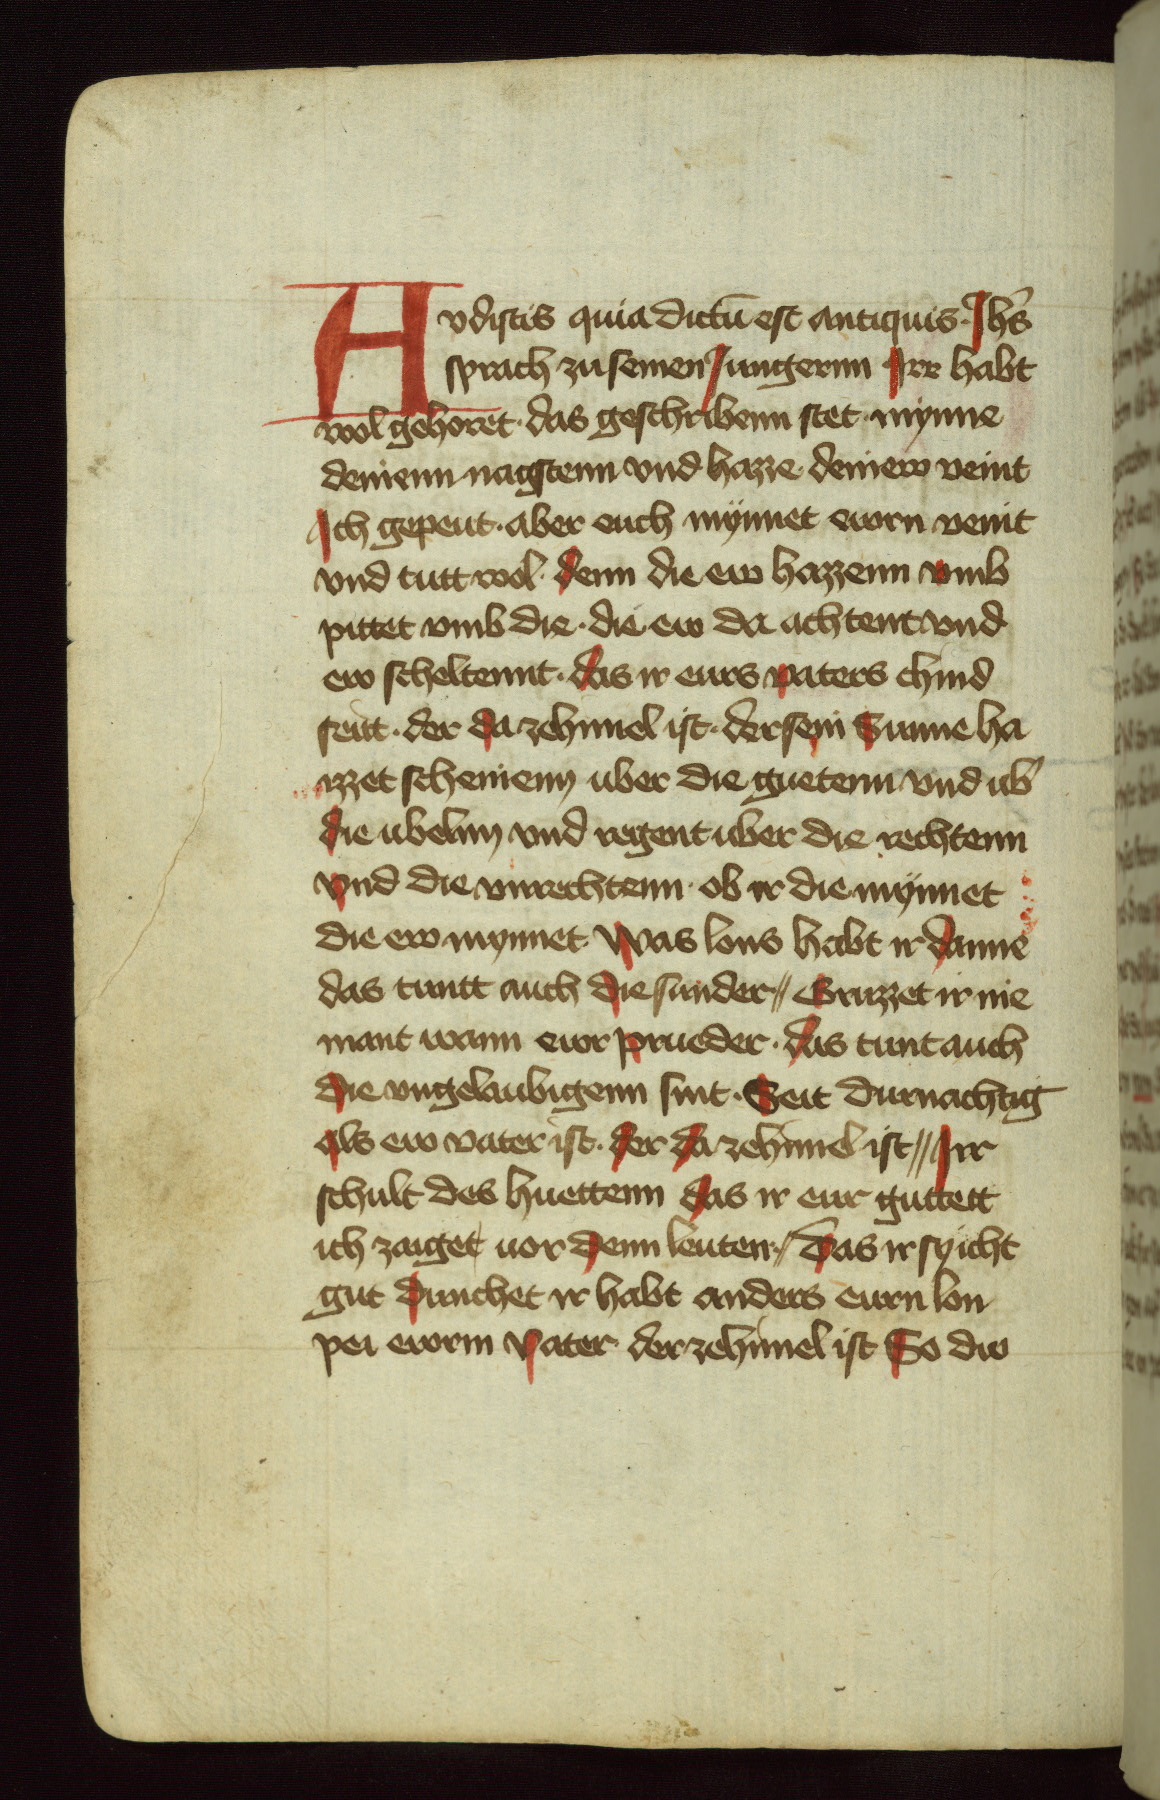 Avdistis quia dictū est antiquis · Jhs̄
sprach zu seinen Jungernn Irr habt
wol gehoret · das geschribenn stet · mynne
deinenn nagstenn vnd hazze · deinew veint
Ich gepeut · aber euch mÿnnet ewrn veint
vnd tutt wol · denn die ew hazzenn vmb
pittet vmb die · die ew da achtent vnd
ew scheltennt · das ir eurs vaters chind
seitt · der da ze himel ist · der sein Sunne ha
izzet scheinenn uber die guetenn vnd ub̄
die ubelnn vnd regent uber die rechtenn
vnd die vnrechtenn · ob ir die mÿnnet
die ew mynnet Was lons habt ir danne
das tuntt auch die sunder // Gruzzet ir nie
mant wann ewr prueder · das tunt auch
die vngelaubigenn sint · Seit durnachtig
als ew vater ist · der da ze himel ist // Irr
schult des huettenn das ir eur guttett
icht zaiget uor denn leuten // Das ir sy icht
gut dunchet ir habt anders eurn lon
pei ewrm vater der ze himel ist So dw